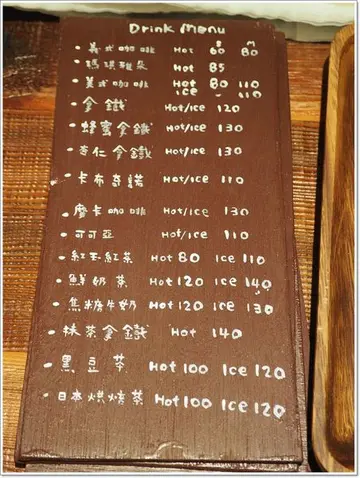 Drink Menu
S M
義式咖啡 Hot 60 80
瑪琪雅朵 Hot 85
美式咖啡 Hot 80 110
Ice 110
拿鐵 Hot/Ice 120
蜂蜜拿鐵 Hot/Ice 130
杏仁拿鐵 Hot/Ice 130
卡布奇諾 Hot/Ice 110
摩卡咖啡 Hot/Ice 130
可可亞 Hot/Ice 110
紅玉紅茶 Hot 80 Ice 110
鮮奶茶 Hot 120 Ice 140
焦糖牛奶 Hot 120 Ice 130
抹茶拿鐵 Hot 140
黑豆茶 Hot 100 Ice 120
日本烘焙茶 Hot 100 Ice 120